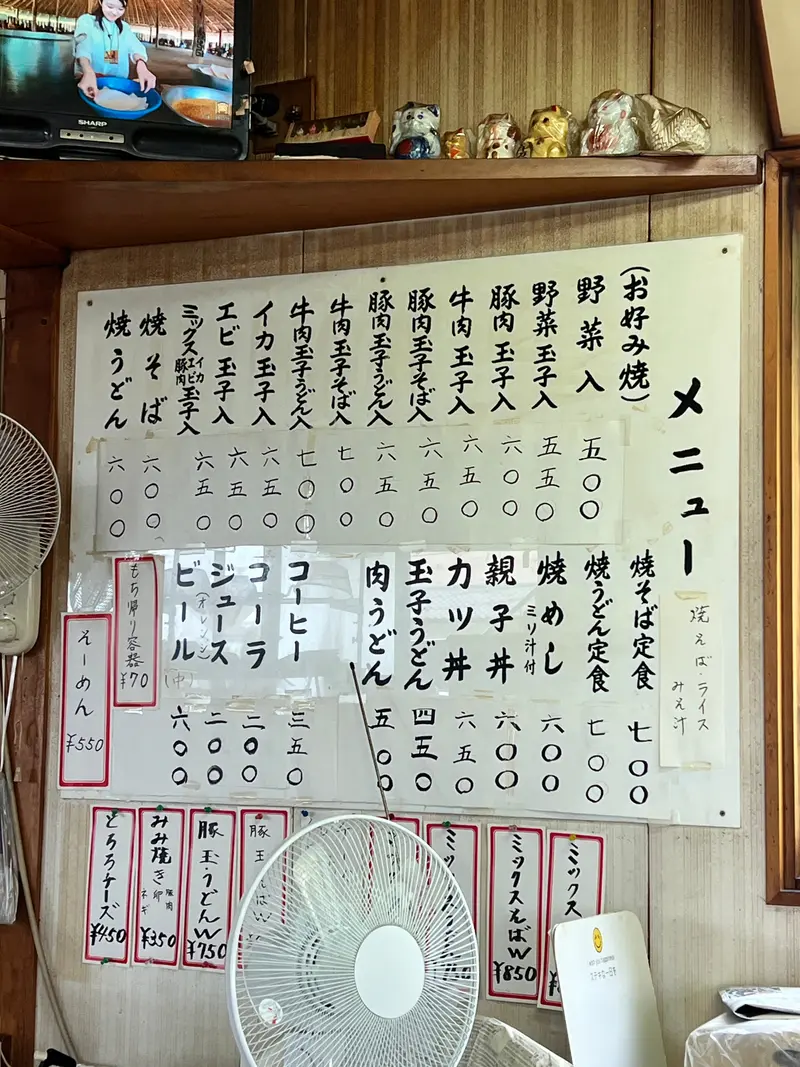 SHARP
メニュー
(お好み焼)
野菜入 五〇〇
野菜玉子入 五五〇
豚肉玉子入 六〇〇
牛肉玉子入 六五〇
豚肉玉子そば入 六五〇
豚肉玉子うどん入 六五〇
牛肉玉子そば入 七〇〇
牛肉玉子うどん入 七〇〇
イカ玉子入 六五〇
エビ玉子入 六五〇
ミックスイカエビ豚肉玉子入 六五〇
焼そば 六〇〇
焼うどん 六〇〇
焼そば・ライス
みそ汁
焼そば定食 七〇〇
焼うどん定食 七〇〇
焼めし ミソ汁付 六〇〇
親子丼 六〇〇
カツ丼 六五〇
玉子うどん 四五〇
肉うどん 五〇〇
コーヒー 三五〇
コーラ 二〇〇
ジュース(オレンジ) 二〇〇
ビール(中) 六〇〇
もち帰り容器 ¥70
そーめん ¥550
ミックス
ミックスそばW ¥850
ミックス
豚玉
豚玉・うどんW ¥750
みみ焼き 豚肉 卵 ネギ ¥350
とろろチーズ ¥450